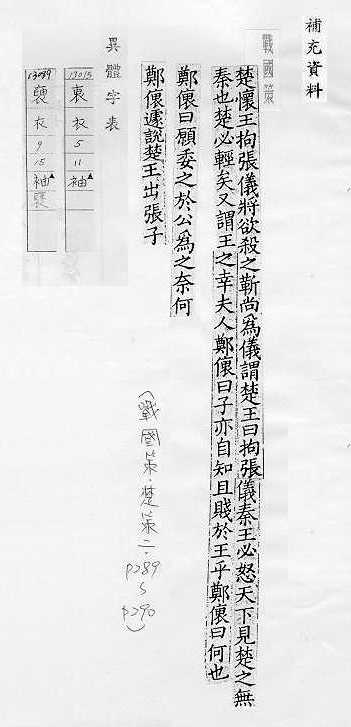 補充資料
戰國策
楚懷王拘張儀將欲殺之靳尚為儀謂楚王曰拘張儀秦王必怒天下見楚之無
秦也楚必輕矣又謂王之幸夫人鄭儇曰子亦自知且賤於王乎鄭儇曰何也
鄭儇曰願委之於公為之奈何
鄭儇遽說楚王出張子
(戰國策·楚策二·P289~P290)
異體字表
13015 衷 衣 5 11 袖▲
13089 褏 衣 9 15 袖▲